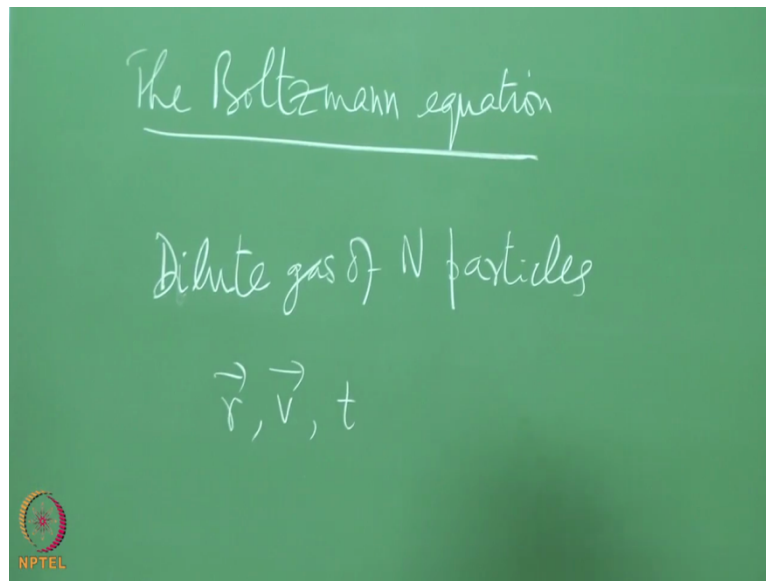 The Boltzmann equation
Dilute gas of N particles
r⃗, v⃗, t
NPTEL